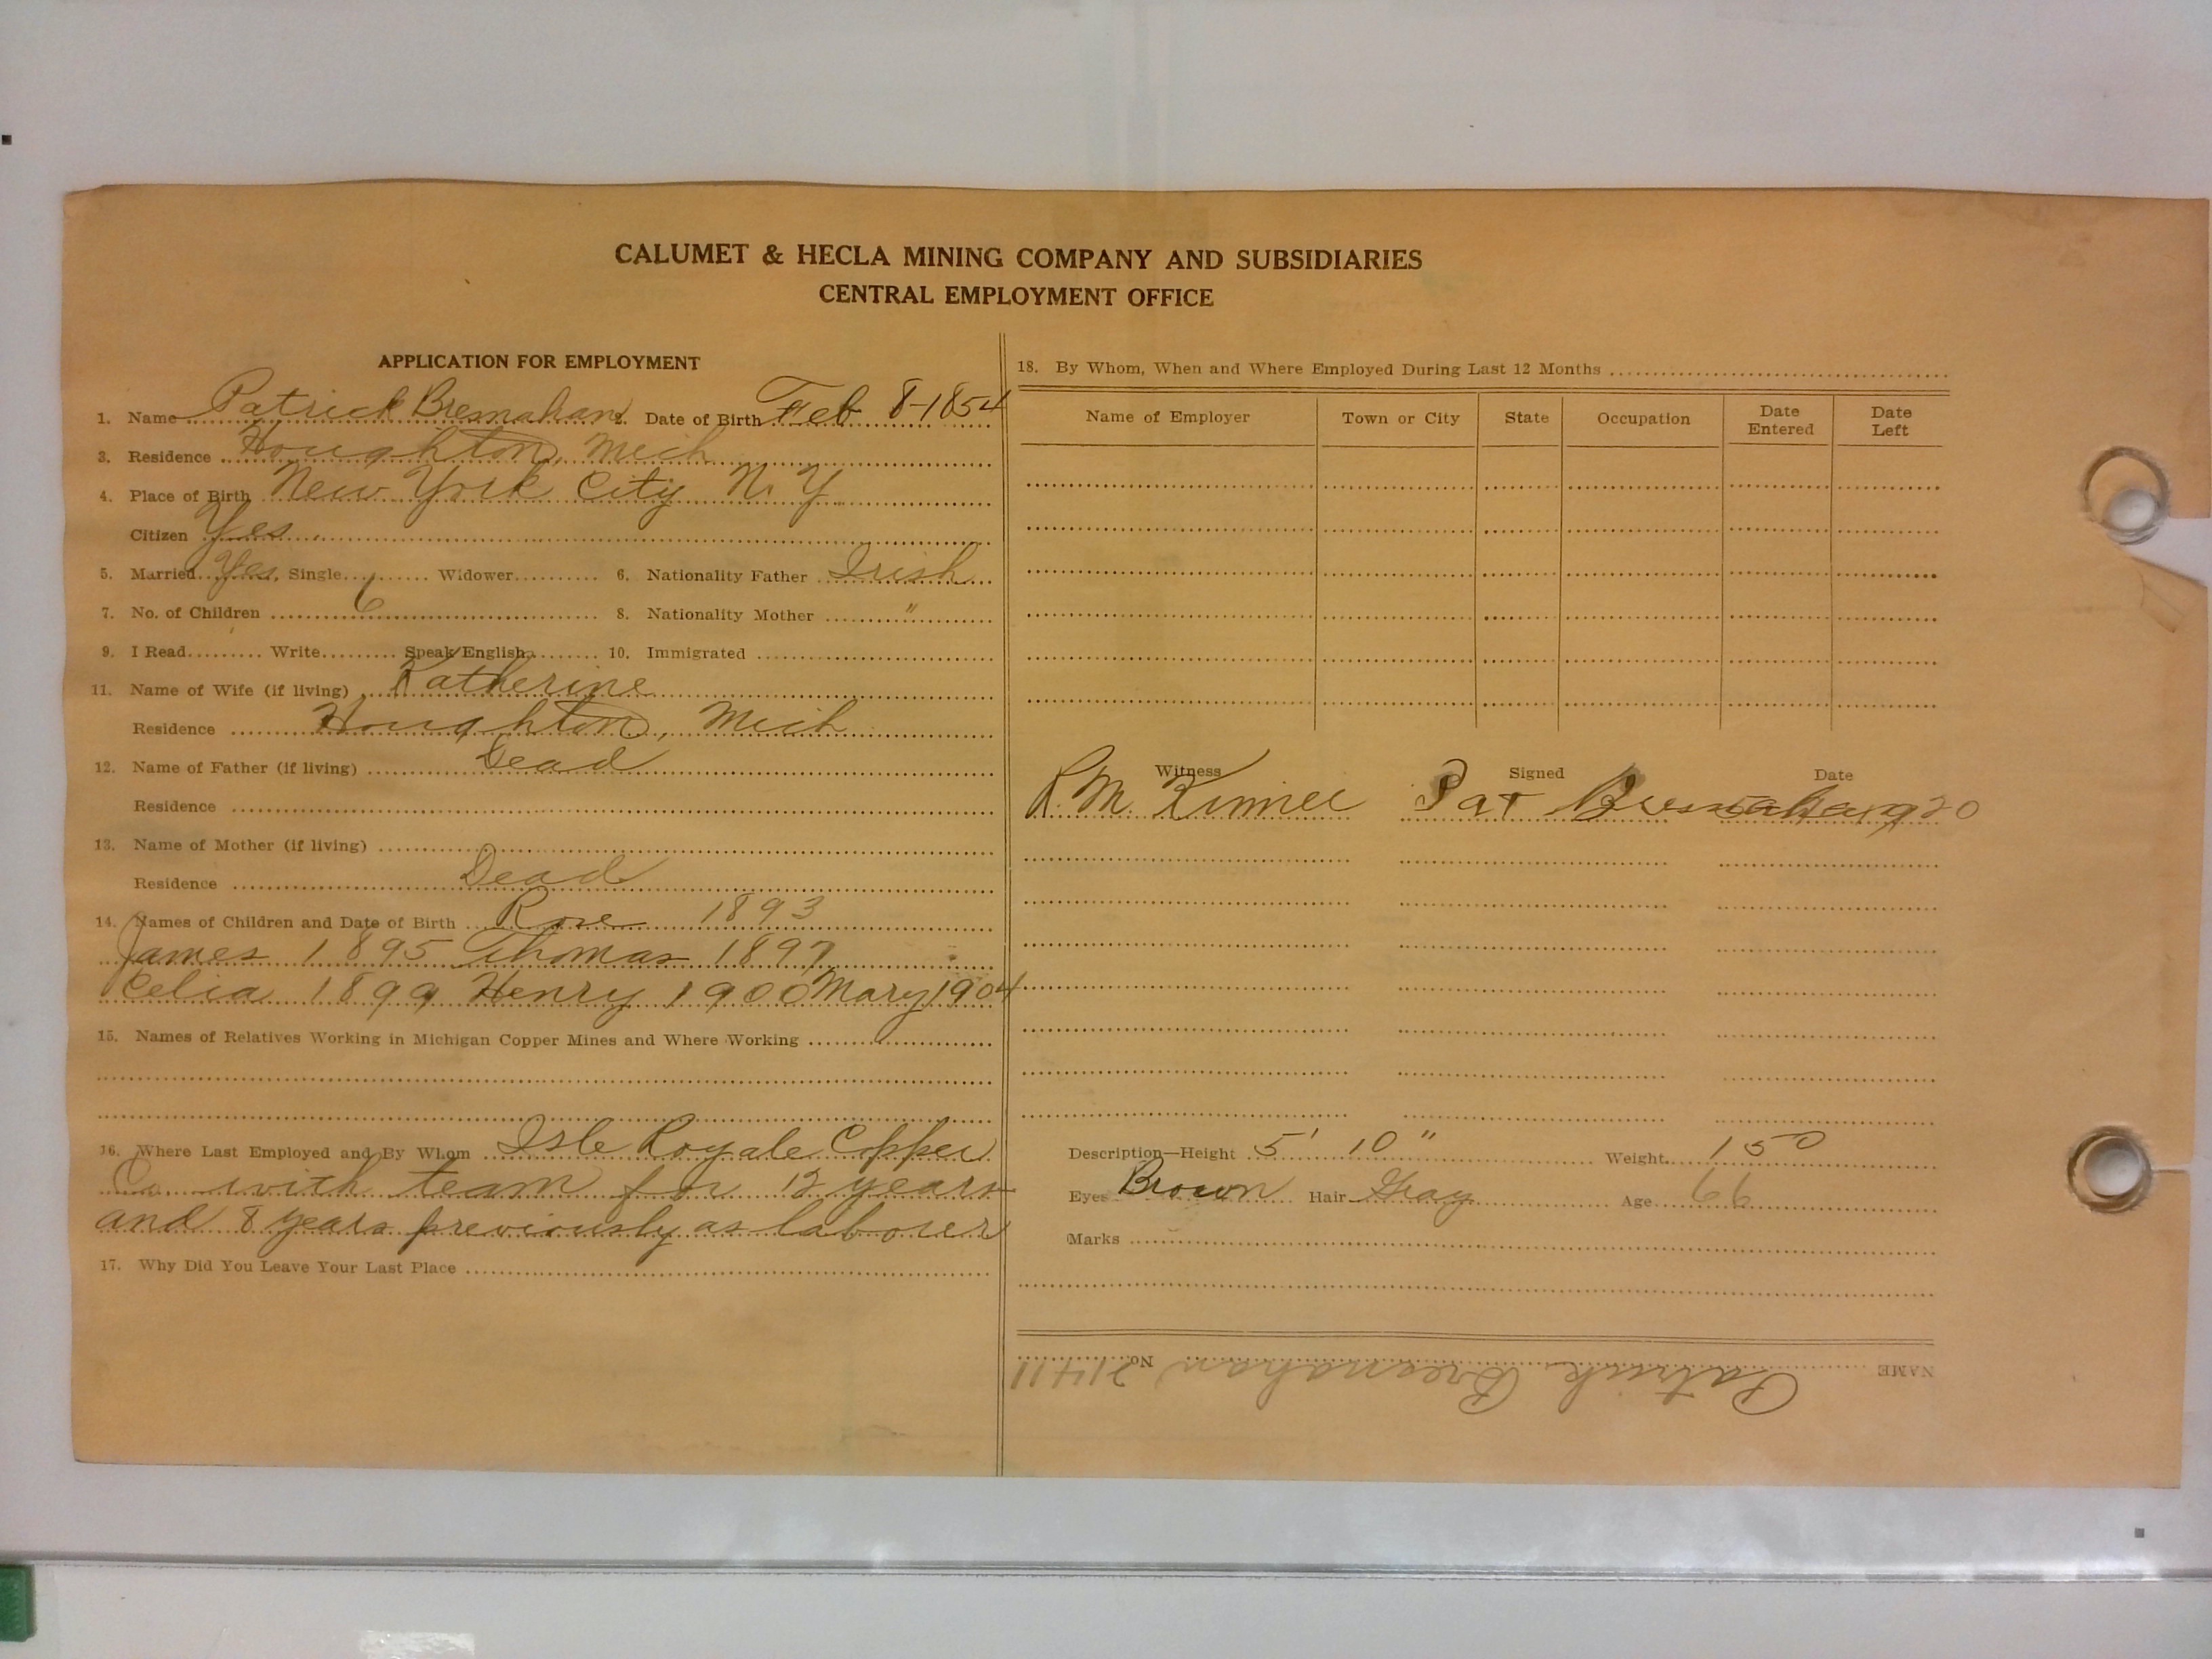 CALUMET & HECLA MINING COMPANY AND SUBSIDIARIES
CENTRAL EMPLOYMENT OFFICE
APPLICATION FOR EMPLOYMENT
1. Name Patrick Bresnahan 2. Date of Birth Feb 8-1854
3. Residence Houghton, Mich
4. Place of Birth New York City N.Y.
Citizen Yes
5. Married Yes, Single Widower 6. Nationality Father Irish
7. No. of Children 6 8. Nationality Mother "
9. I Read Write Speak English 10. Immigrated
11. Name of Wife (if living) Katherine
Residence Houghton, Mich
12. Name of Father (if living) Dead
Residence
13. Name of Mother (if living)
Residence Dead
14. Names of Children and Date of Birth Rose 1893
James 1895 Thomas 1897
Celia 1899 Henry 1900 Mary 1904
15. Names of Relatives Working in Michigan Copper Mines and Where Working
16. Where Last Employed and By Whom Isle Royale Copper
Co. with team for 12 years
and 8 years previously as laborer
17. Why Did You Leave Your Last Place
18. By Whom, When and Where Employed During Last 12 Months
Name of Employer Town or City State Occupation Date Entered Date Left
Witness Signed Date
R.M. Pat Bresnahan 1920
Description—Height 5' 10" Weight 150
Eyes Brown Hair Gray Age 66
Marks
NAME Patrick Bresnahan No. 21411